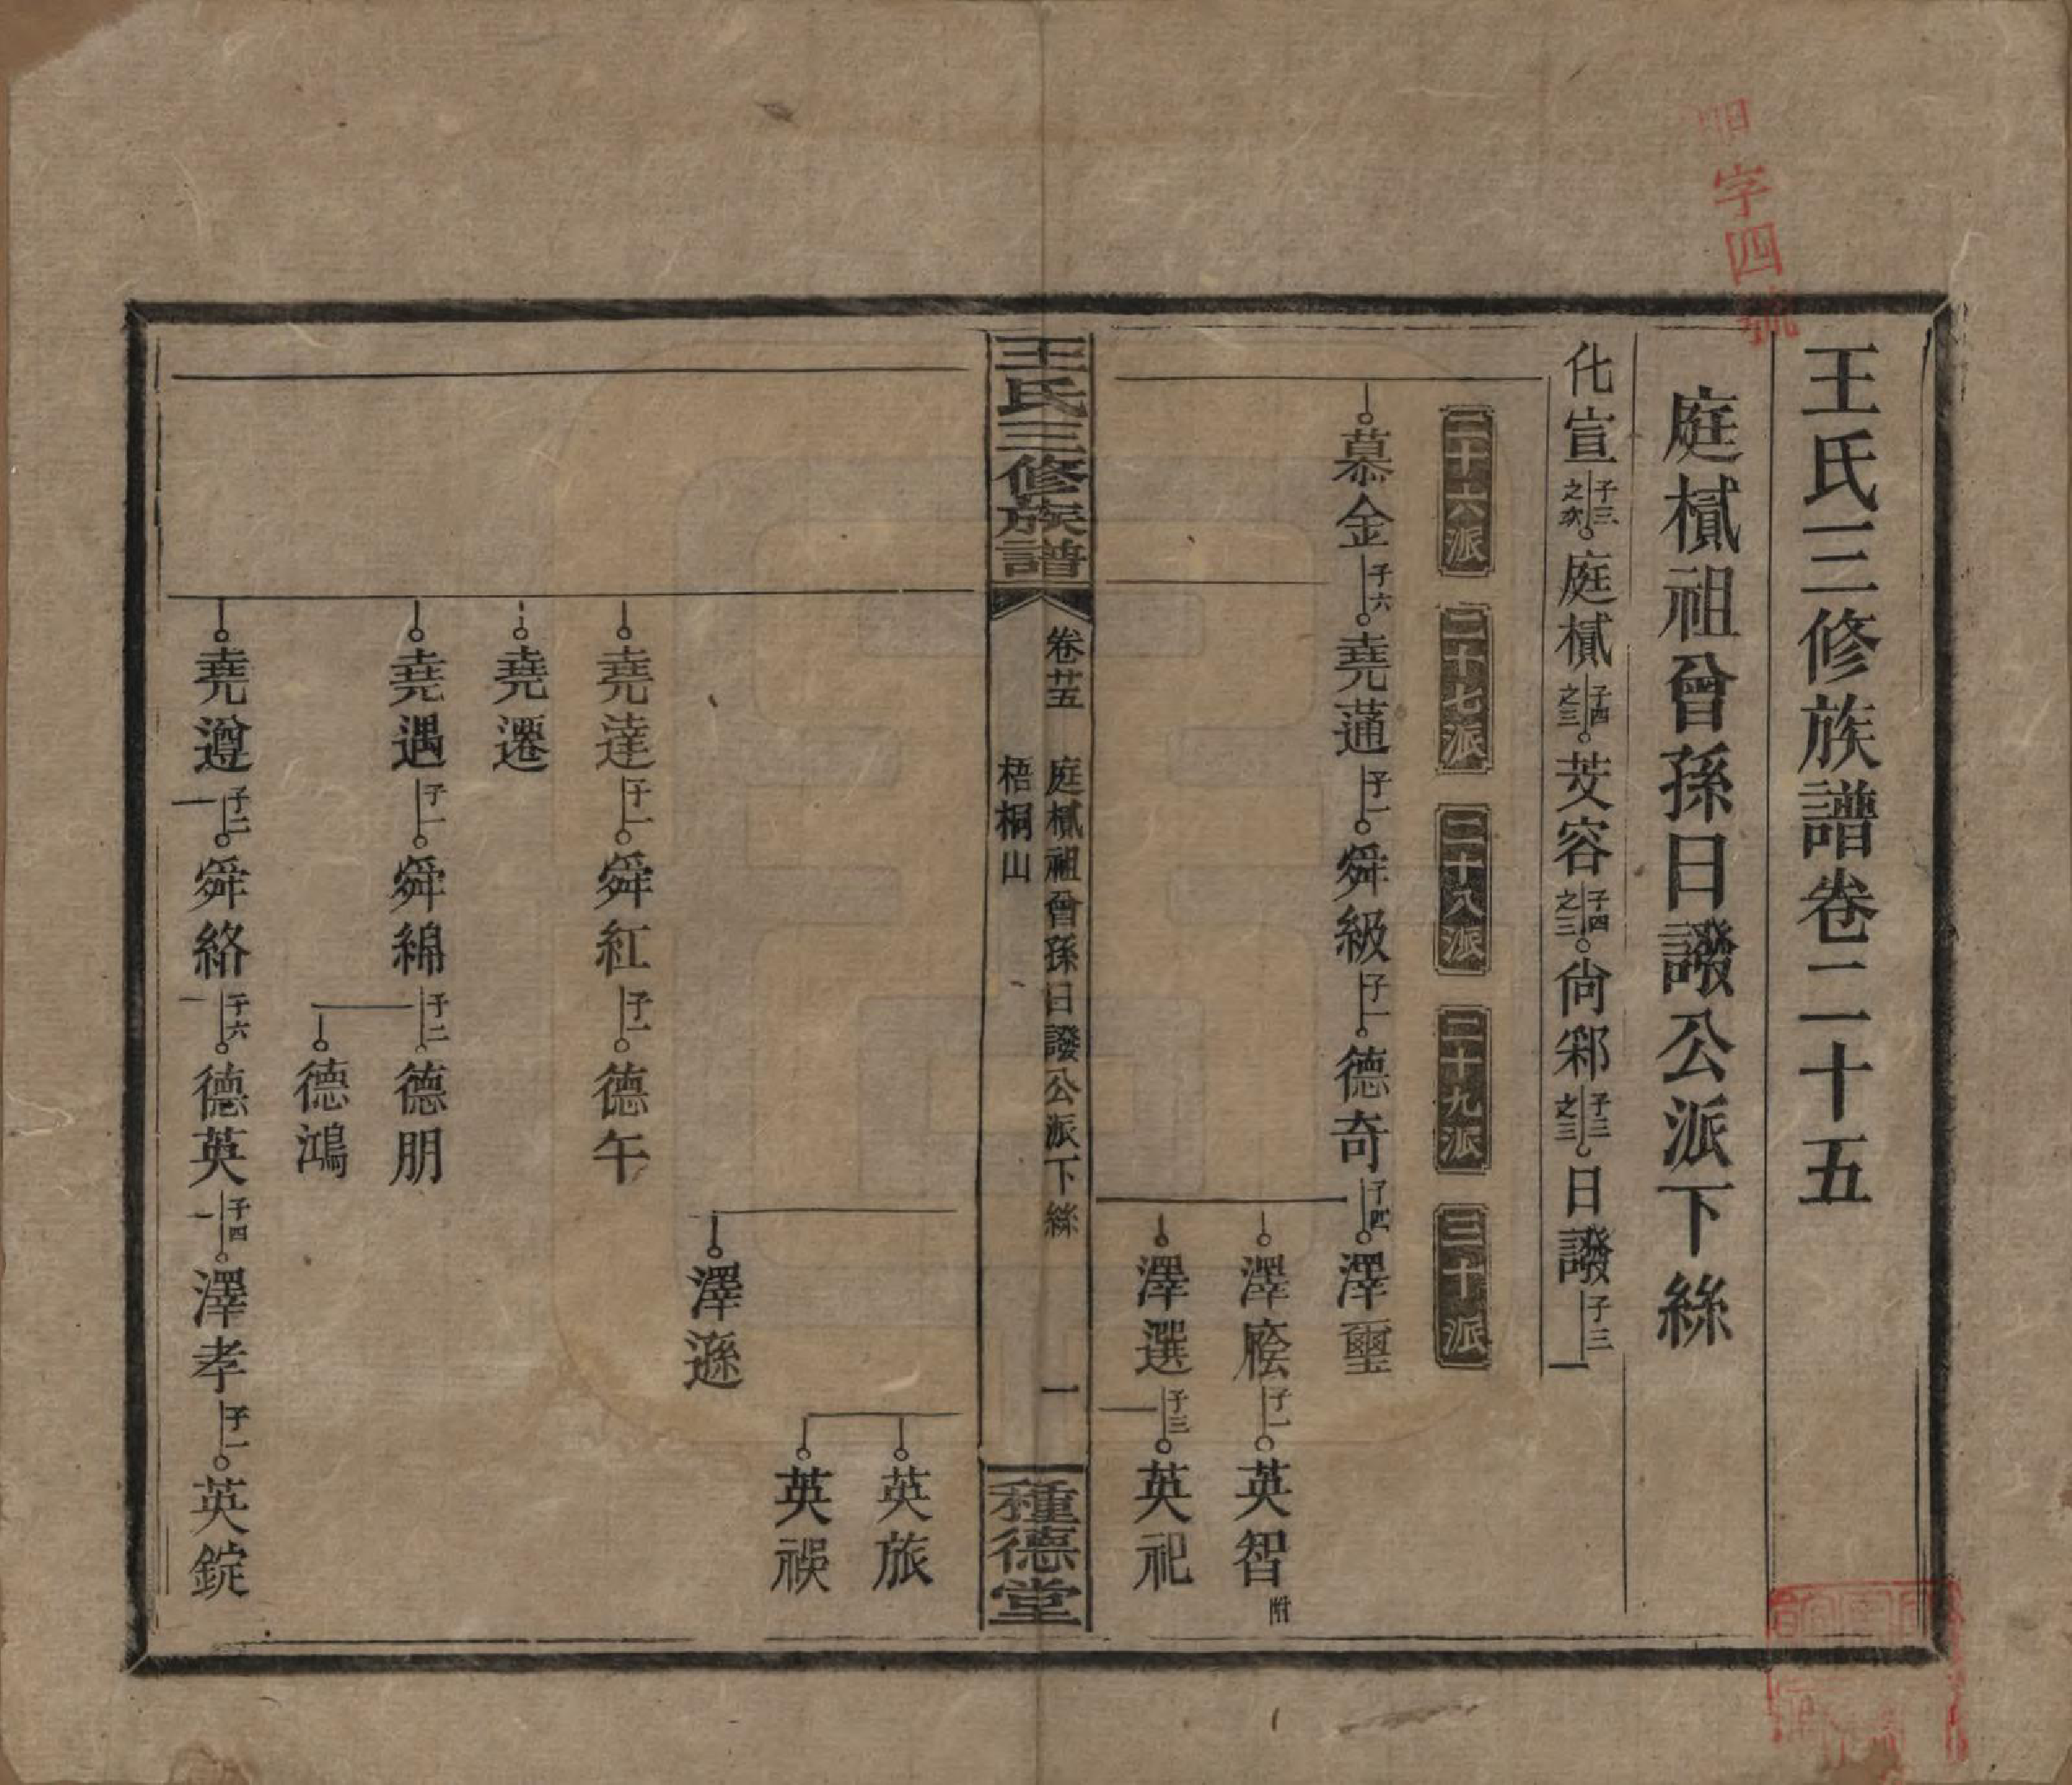 王氏三修族譜卷二十五
庭樲祖曾孫日譭公派下絲
化宣 子三之次 庭樲 子四之三 芰容 子四之三 尙郊 子三之三 日 子三
二十六派 二十七派 二十八派 二十九派 三十派
慕金 子六 堯通 子一 舜級 子一 德奇 子四 澤璽
澤 子一 英智 附
澤選 子三 英祀
王氏三修族譜
卷廿五 庭樲祖曾孫日公派下絲 一
梧桐山
種德堂
英旅
英祦
澤遜
堯達 子一 舜紅 子一 德午
堯遷
堯遇 子一 舜綿 子二 德朋
德鴻
堯遵 子二 舜絡 子六 德英 子四 澤孝 子一 英錠
字四號